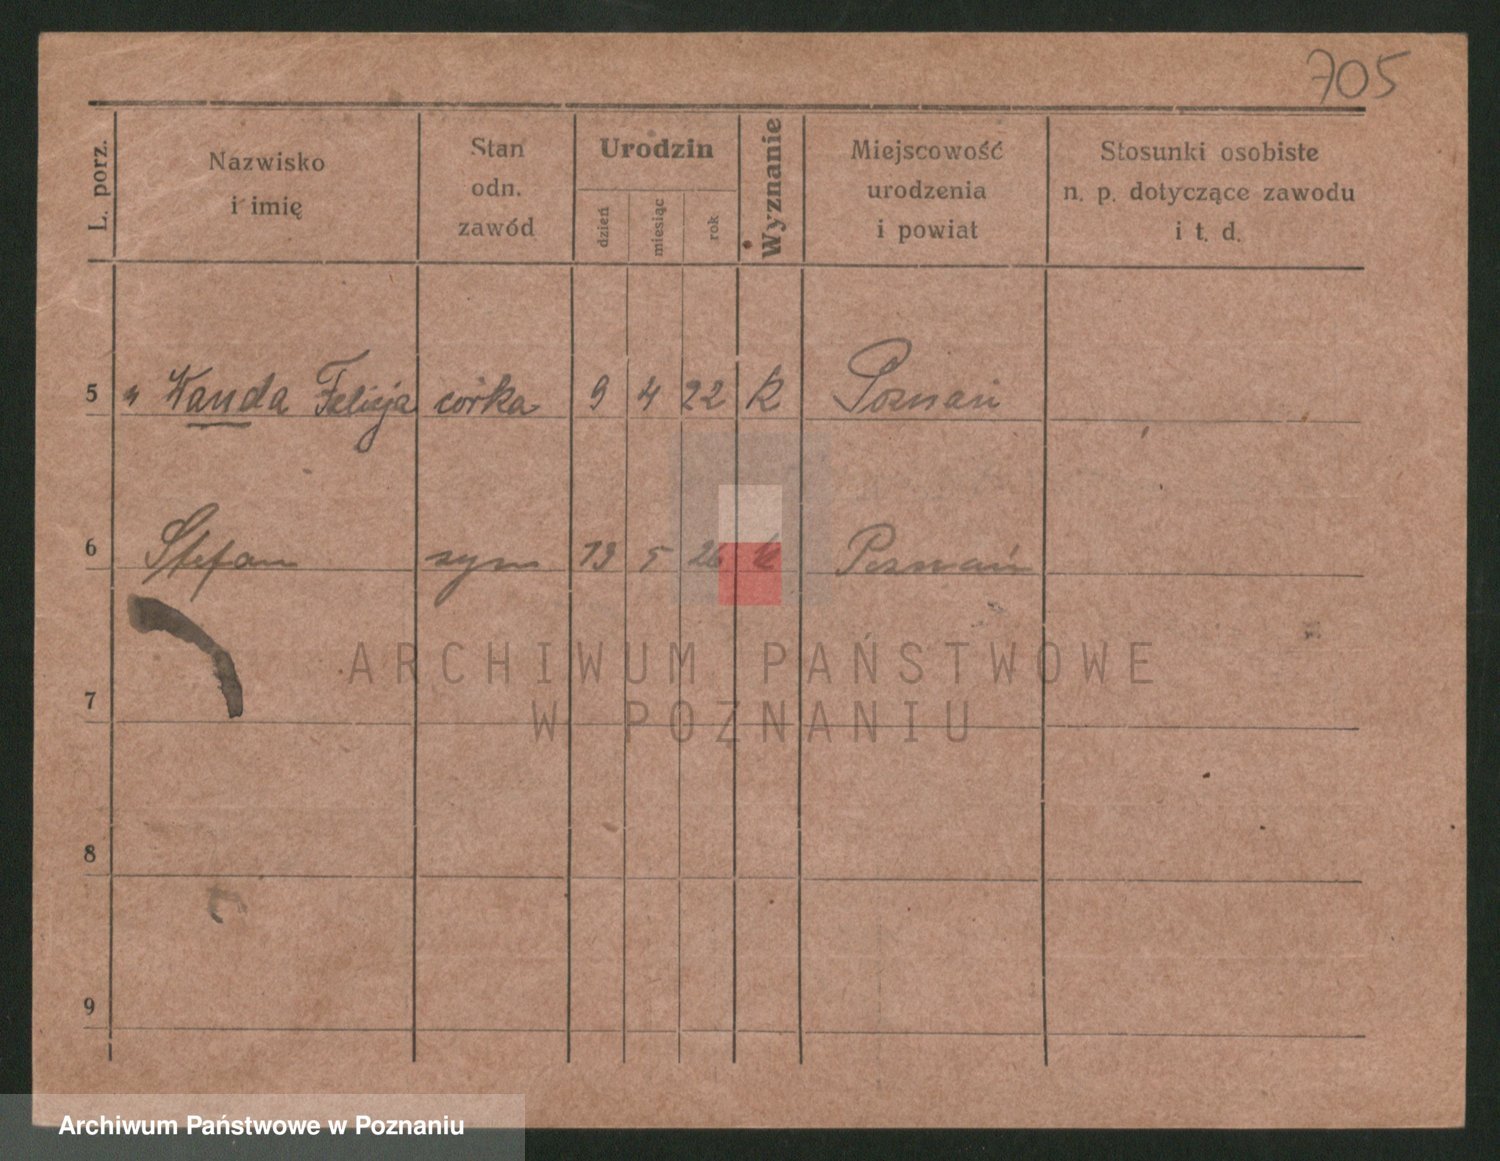 705
L. porz.
Nazwisko
i imię
Stan
odn.
zawód
Urodzin
dzień
miesiąc
rok
Wyznanie
Miejscowość
urodzenia
i powiat
Stosunki osobiste
n. p. dotyczące zawodu
i t. d.
5 " Wanda Felicja córka 9 4 22 k Poznań
6 Stefan syn 13 5 26 k Poznań
ARCHIWUM PAŃSTWOWE
W POZNANIU
7
8
9
Archiwum Państwowe w Poznaniu